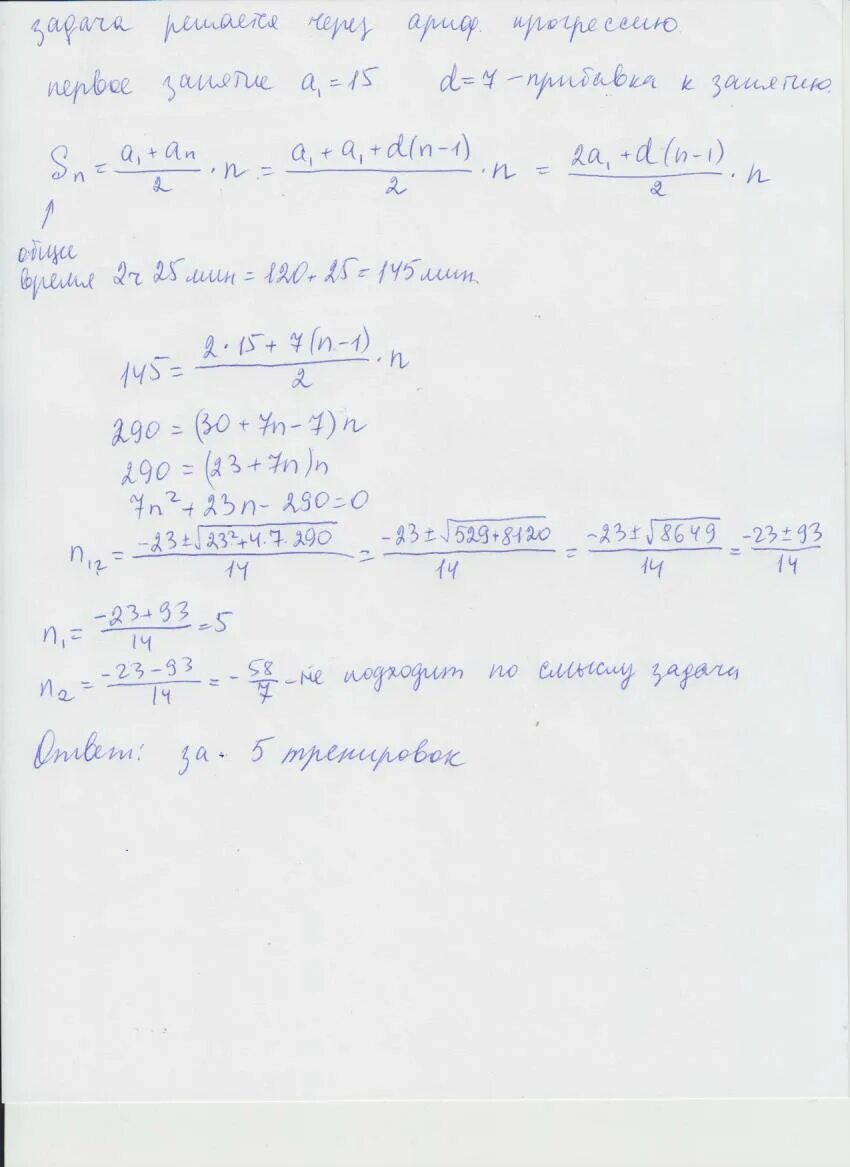 задача решается через ариф. прогрессию.
первое занятие a₁ = 15 d = 7 – прибавка к занятию.
Sₙ = (a₁ + aₙ)/2 · n = (a₁ + a₁ + d(n-1))/2 · n = (2a₁ + d(n-1))/2 · n
↑
общее
время 2ч 25 мин = 120 + 25 = 145 мин.
145 = (2·15 + 7(n-1))/2 · n
290 = (30 + 7n - 7)n
290 = (23 + 7n)n
7n² + 23n - 290 = 0
n₁₂ = (-23 ± √(23² + 4·7·290))/14 = (-23 ± √(529 + 8120))/14 = (-23 ± √8649)/14 = (-23 ± 93)/14
n₁ = (-23 + 93)/14 = 5
n₂ = (-23 - 93)/14 = - 58/7 – не подходит по смыслу задачи
Ответ: за 5 тренировок